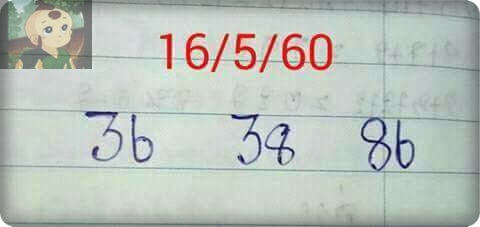 16/5/60
36 38 86